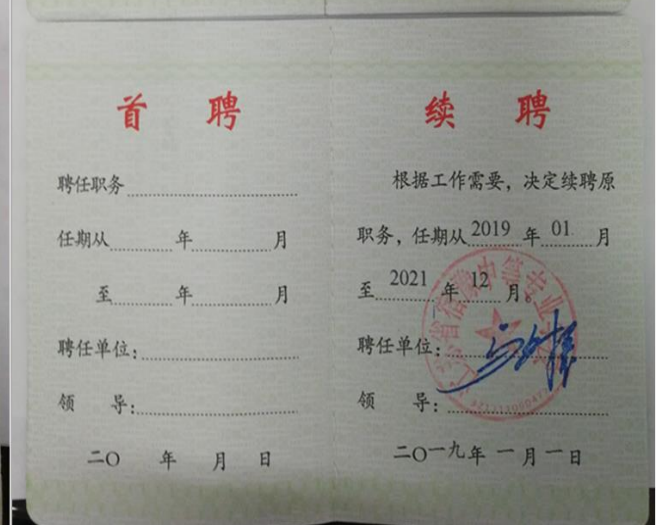 首 聘
聘任职务
任期从 年 月
至 年 月
聘任单位:
领 导:
二〇 年 月 日
续 聘
根据工作需要，决定续聘原
职务，任期从 2019 年 01 月
至 2021 年 12 月。
聘任单位:
领 导:
二〇一九年 一 月 一 日